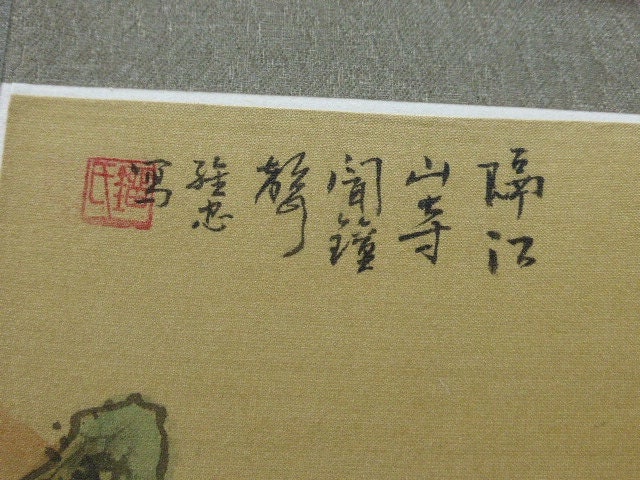 隔江
山寺
聞鐘
聲
維忠
寫